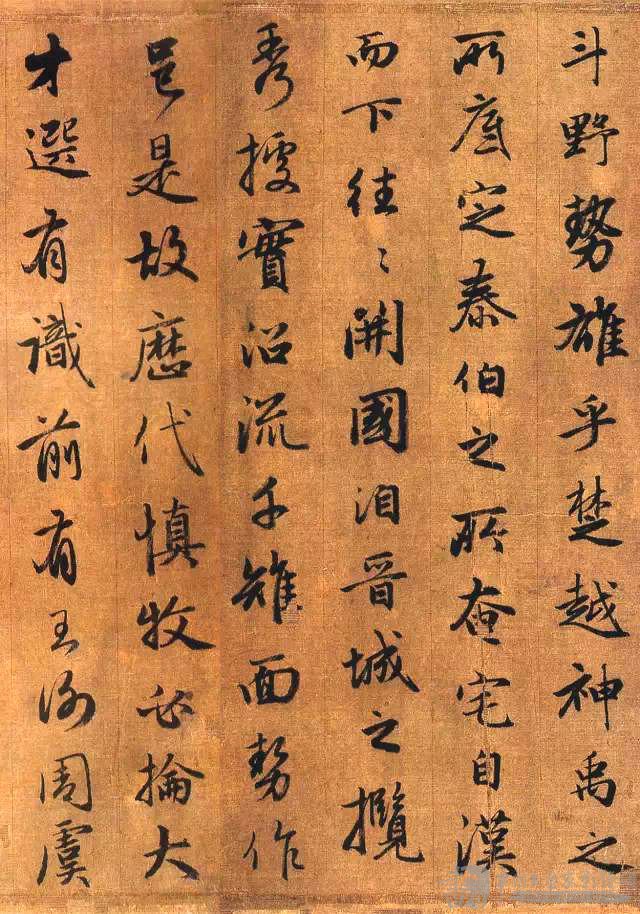 斗野勢雄乎楚越神禹之
所底定泰伯之所奄宅自漢
而下往〻開國洎晉城之攬
秀據實沿流千雉面勢作
邑是故歷代慎牧必掄大
才選有識前有王周虞